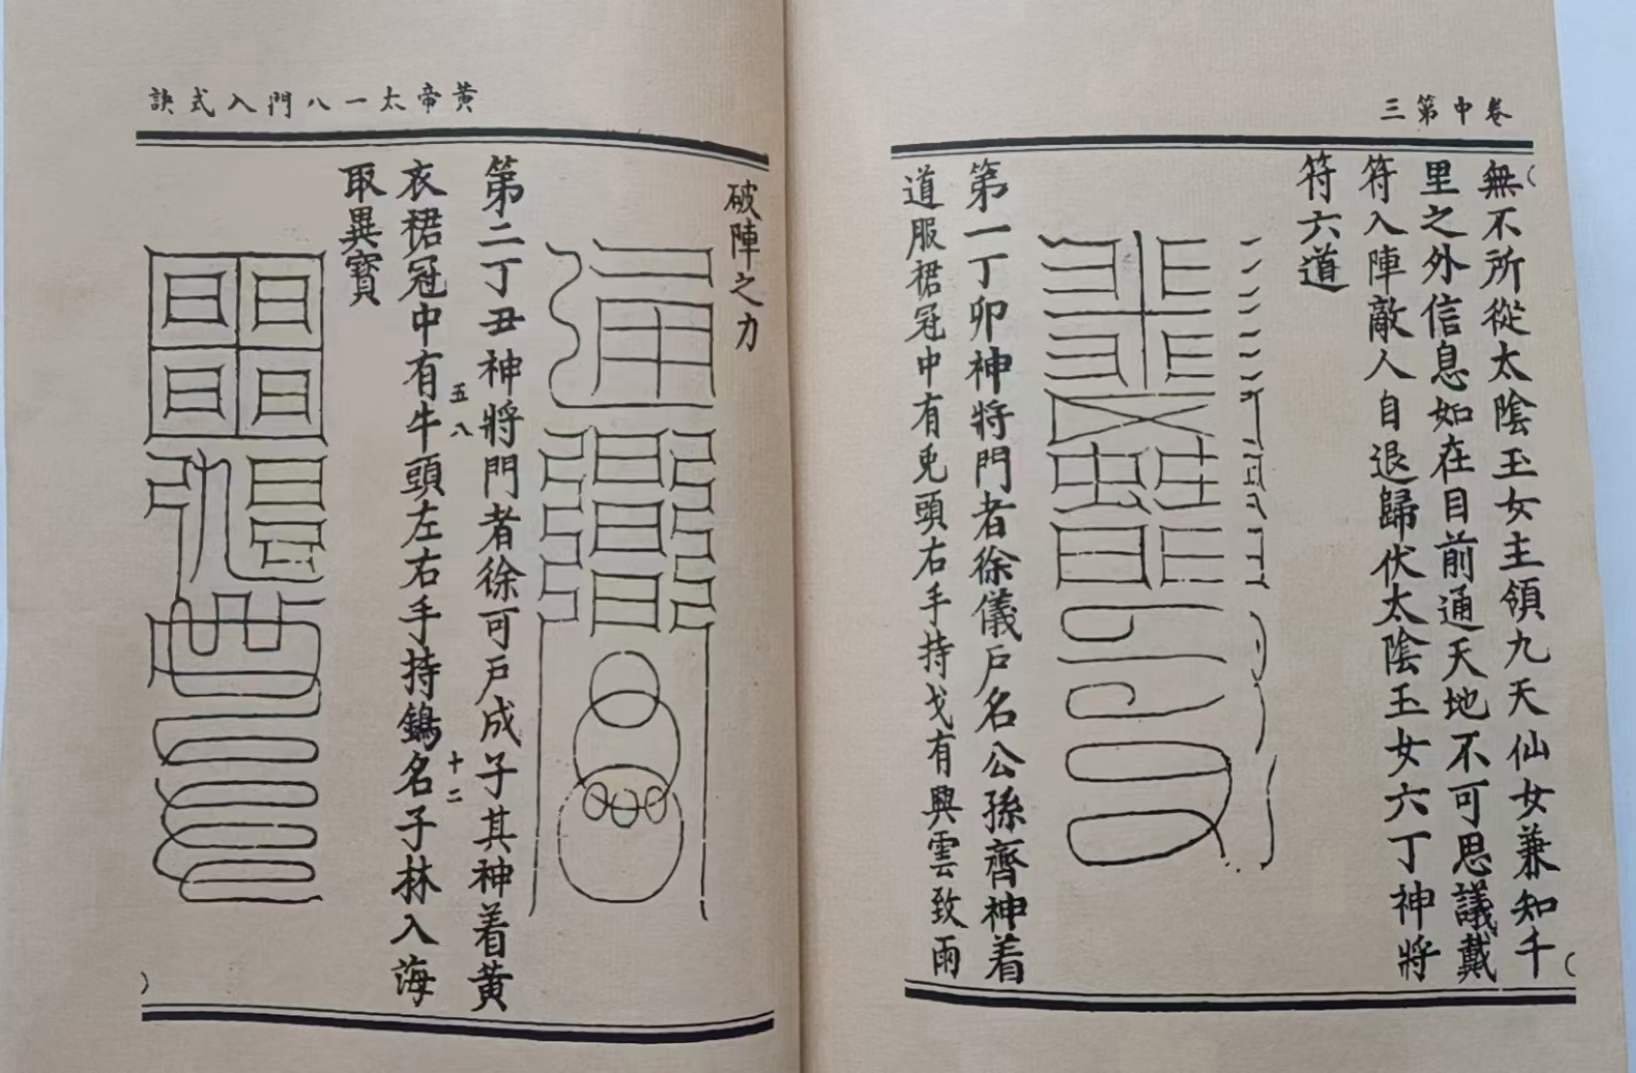 卷中第三
無不所從太陰玉女主領九天仙女兼知千
里之外信息如在目前通天地不可思議戴
符入陣敵人自退歸伏太陰玉女六丁神將
符六道
第一丁卯神將門者徐儀戶名公孫齊神着
道服裙冠中有兎頭右手持戈有興雲致雨
黃帝太一八門入式訣
破陣之力
第二丁丑神將門者徐可戶成子其神着黃
五八
十二
衣裙冠中有牛頭左右手持名子林入海
取異寶